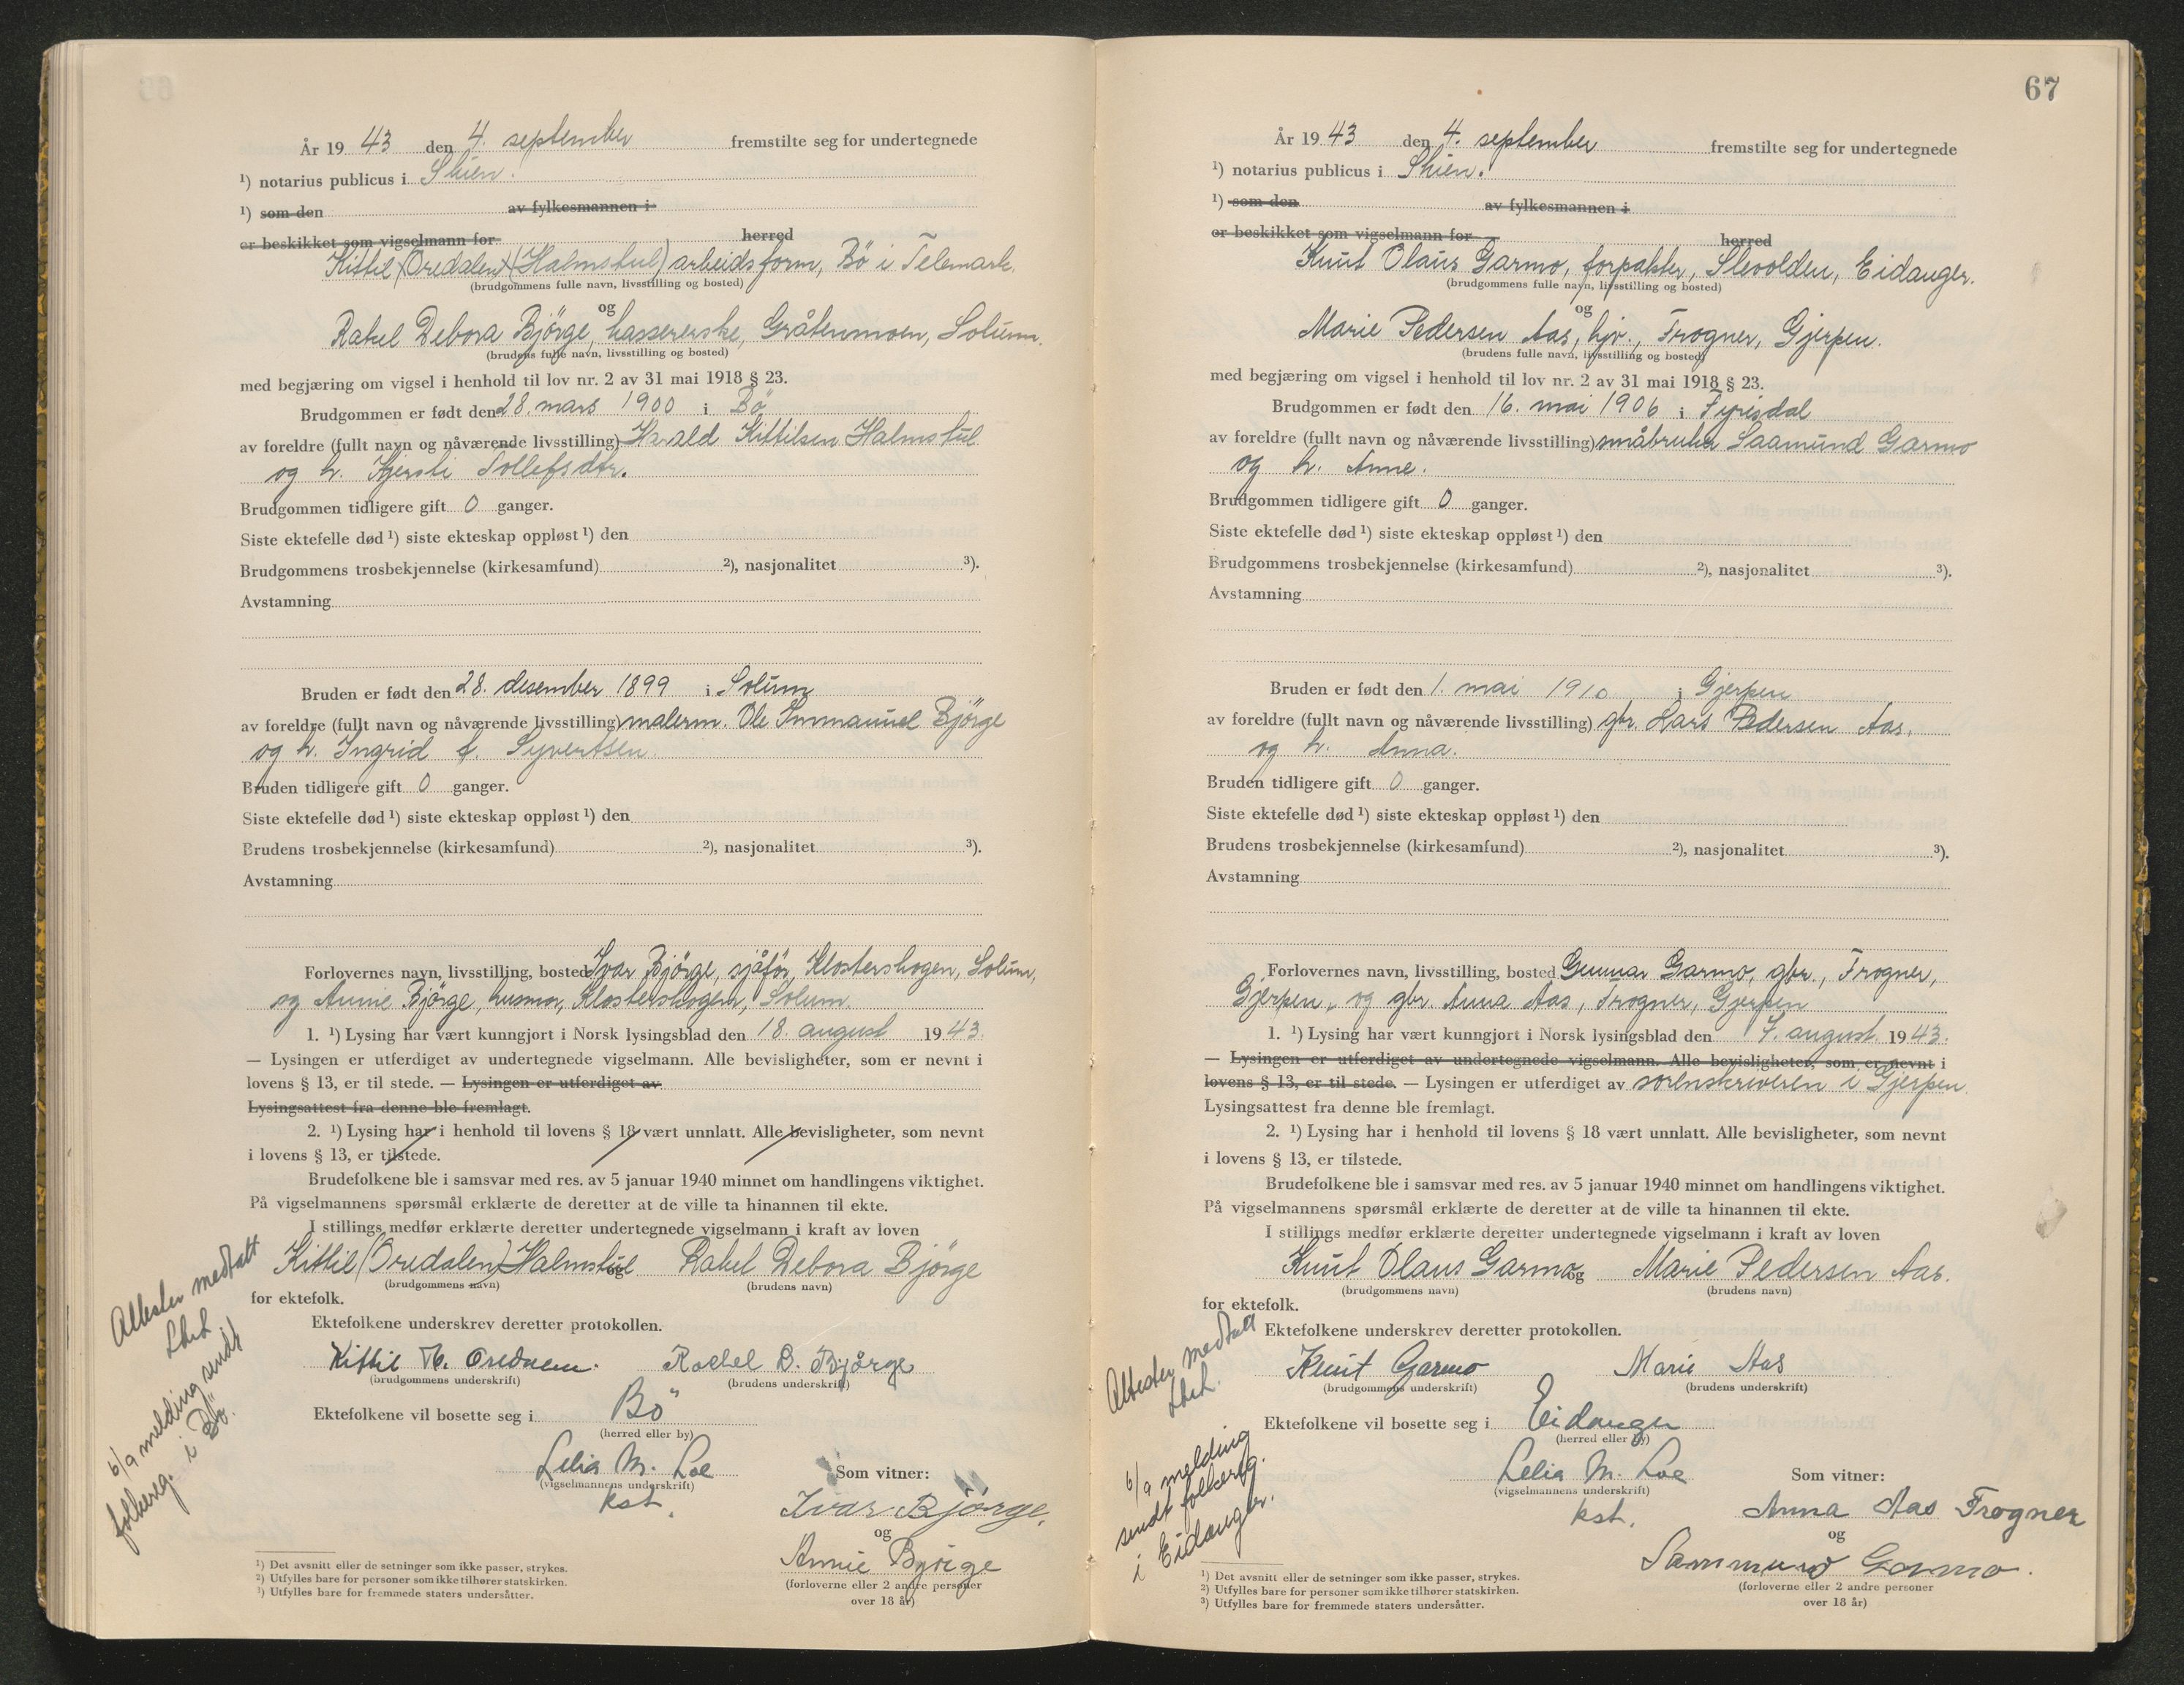 År 19 43 den 4. september fremstilte seg for undertegnede
¹) notarius publicus i Skien.
¹) som den av fylkesmannen i
er beskikket som vigselmann for herred
Kittil (Oredalen) (Halmstul) arbeidsform, Bö i Telemark.
(brudgommens fulle navn, livsstilling og bosted)
og
Rakel Debora Björge, kassererske, Gråtenmoen, Solum.
(brudens fulle navn, livsstilling og bosted)
med begjæring om vigsel i henhold til lov nr. 2 av 31 mai 1918 § 23.
Brudgommen er født den 28. mars 1900 i Bö
av foreldre (fullt navn og nåværende livsstilling) Harald Kittilsen Halmstul
og h. Kjersti Sollefsdtr.
Brudgommen tidligere gift 0 ganger.
Siste ektefelle død ¹) siste ekteskap oppløst ¹) den
Brudgommens trosbekjennelse (kirkesamfund) ²), nasjonalitet ³).
Avstamning
Bruden er født den 28. desember 1899 i Solum
av foreldre (fullt navn og nåværende livsstilling) malerm. Ole Immanuel Björge
og h. Ingrid f. Syvertsen.
Bruden tidligere gift 0 ganger.
Siste ektefelle død ¹) siste ekteskap oppløst ¹) den
Brudens trosbekjennelse (kirkesamfund) ²), nasjonalitet ³).
Avstamning
Forlovernes navn, livsstilling, bosted Ivar Björge, sjåför, Klosterskogen, Solum,
og Annie Björge, husmor, Klosterskogen, Solum.
1. ¹) Lysing har vært kunngjort i Norsk lysingsblad den 18. august 19 43.
— Lysingen er utferdiget av undertegnede vigselmann. Alle bevisligheter, som er nevnt i
lovens § 13, er til stede. — Lysingen er utferdiget av
Lysingsattest fra denne ble fremlagt.
2. ¹) Lysing har i henhold til lovens § 18 vært unnlatt. Alle bevisligheter, som nevnt
i lovens § 13, er tilstede.
Brudefolkene ble i samsvar med res. av 5 januar 1940 minnet om handlingens viktighet.
På vigselmannens spørsmål erklærte de deretter at de ville ta hinannen til ekte.
I stillings medfør erklærte deretter undertegnede vigselmann i kraft av loven
Kittil (Oredalen) Halmstul og Rakel Debora Björge
(brudgommens navn) (brudens navn)
for ektefolk.
Ektefolkene underskrev deretter protokollen.
Kittil H. Oredalen. Rachel D. Bjørge
(brudgommens underskrift) (brudens underskrift)
Ektefolkene vil bosette seg i Bö
(herred eller by)
Lelia M. Loe
(vigselmannens underskrift)
kst.
Som vitner:
Ivar Bjørge.
og
Annie Bjørge
(forloverne eller 2 andre personer
over 18 år)
Attester medtatt
6/9 melding sendt
folkereg. i Bö.
¹) Det avsnitt eller de setninger som ikke passer, strykes.
²) Utfylles bare for personer som ikke tilhører statskirken.
³) Utfylles bare for fremmede staters undersåtter.
67
År 19 43 den 4. september fremstilte seg for undertegnede
¹) notarius publicus i Skien.
¹) som den av fylkesmannen i
er beskikket som vigselmann for herred
Knut Olaus Garmo, forpakter, Slevolden, Eidanger.
(brudgommens fulle navn, livsstilling og bosted)
og
Marie Pedersen Aas, hjv., Frogner, Gjerpen.
(brudens fulle navn, livsstilling og bosted)
med begjæring om vigsel i henhold til lov nr. 2 av 31 mai 1918 § 23.
Brudgommen er født den 16. mai 1906 i Fyrisdal
av foreldre (fullt navn og nåværende livsstilling) småbruker Saamund Garmo
og h. Anne.
Brudgommen tidligere gift 0 ganger.
Siste ektefelle død ¹) siste ekteskap oppløst ¹) den
Brudgommens trosbekjennelse (kirkesamfund) ²), nasjonalitet ³).
Avstamning
Bruden er født den 1. mai 1910 i Gjerpen
av foreldre (fullt navn og nåværende livsstilling) gbr. Lars Pedersen Aas.
og h. Anna.
Bruden tidligere gift 0 ganger.
Siste ektefelle død ¹) siste ekteskap oppløst ¹) den
Brudens trosbekjennelse (kirkesamfund) ²), nasjonalitet ³).
Avstamning
Forlovernes navn, livsstilling, bosted Gunnar Garmo, gbr., Frogner,
Gjerpen, og gbr. Anna Aas, Frogner, Gjerpen
1. ¹) Lysing har vært kunngjort i Norsk lysingsblad den 7. august 19 43.
— Lysingen er utferdiget av undertegnede vigselmann. Alle bevisligheter, som er nevnt i
lovens § 13, er til stede. — Lysingen er utferdiget av sorenskriveren i Gjerpen.
Lysingsattest fra denne ble fremlagt.
2. ¹) Lysing har i henhold til lovens § 18 vært unnlatt. Alle bevisligheter, som nevnt
i lovens § 13, er tilstede.
Brudefolkene ble i samsvar med res. av 5 januar 1940 minnet om handlingens viktighet.
På vigselmannens spørsmål erklærte de deretter at de ville ta hinannen til ekte.
I stillings medfør erklærte deretter undertegnede vigselmann i kraft av loven
Knut Olaus Garmo og Marie Pedersen Aas.
(brudgommens navn) (brudens navn)
for ektefolk.
Ektefolkene underskrev deretter protokollen.
Knut Garmo Marie Aas
(brudgommens underskrift) (brudens underskrift)
Ektefolkene vil bosette seg i Eidanger
(herred eller by)
Lelia M. Loe
(vigselmannens underskrift)
kst.
Som vitner:
Anna Aas Frogner
og
Sammund Garmo.
(forloverne eller 2 andre personer
over 18 år)
Attester medtatt
6/9 melding
sendt folkereg.
i Eidanger.
¹) Det avsnitt eller de setninger som ikke passer, strykes.
²) Utfylles bare for personer som ikke tilhører statskirken.
³) Utfylles bare for fremmede staters undersåtter.